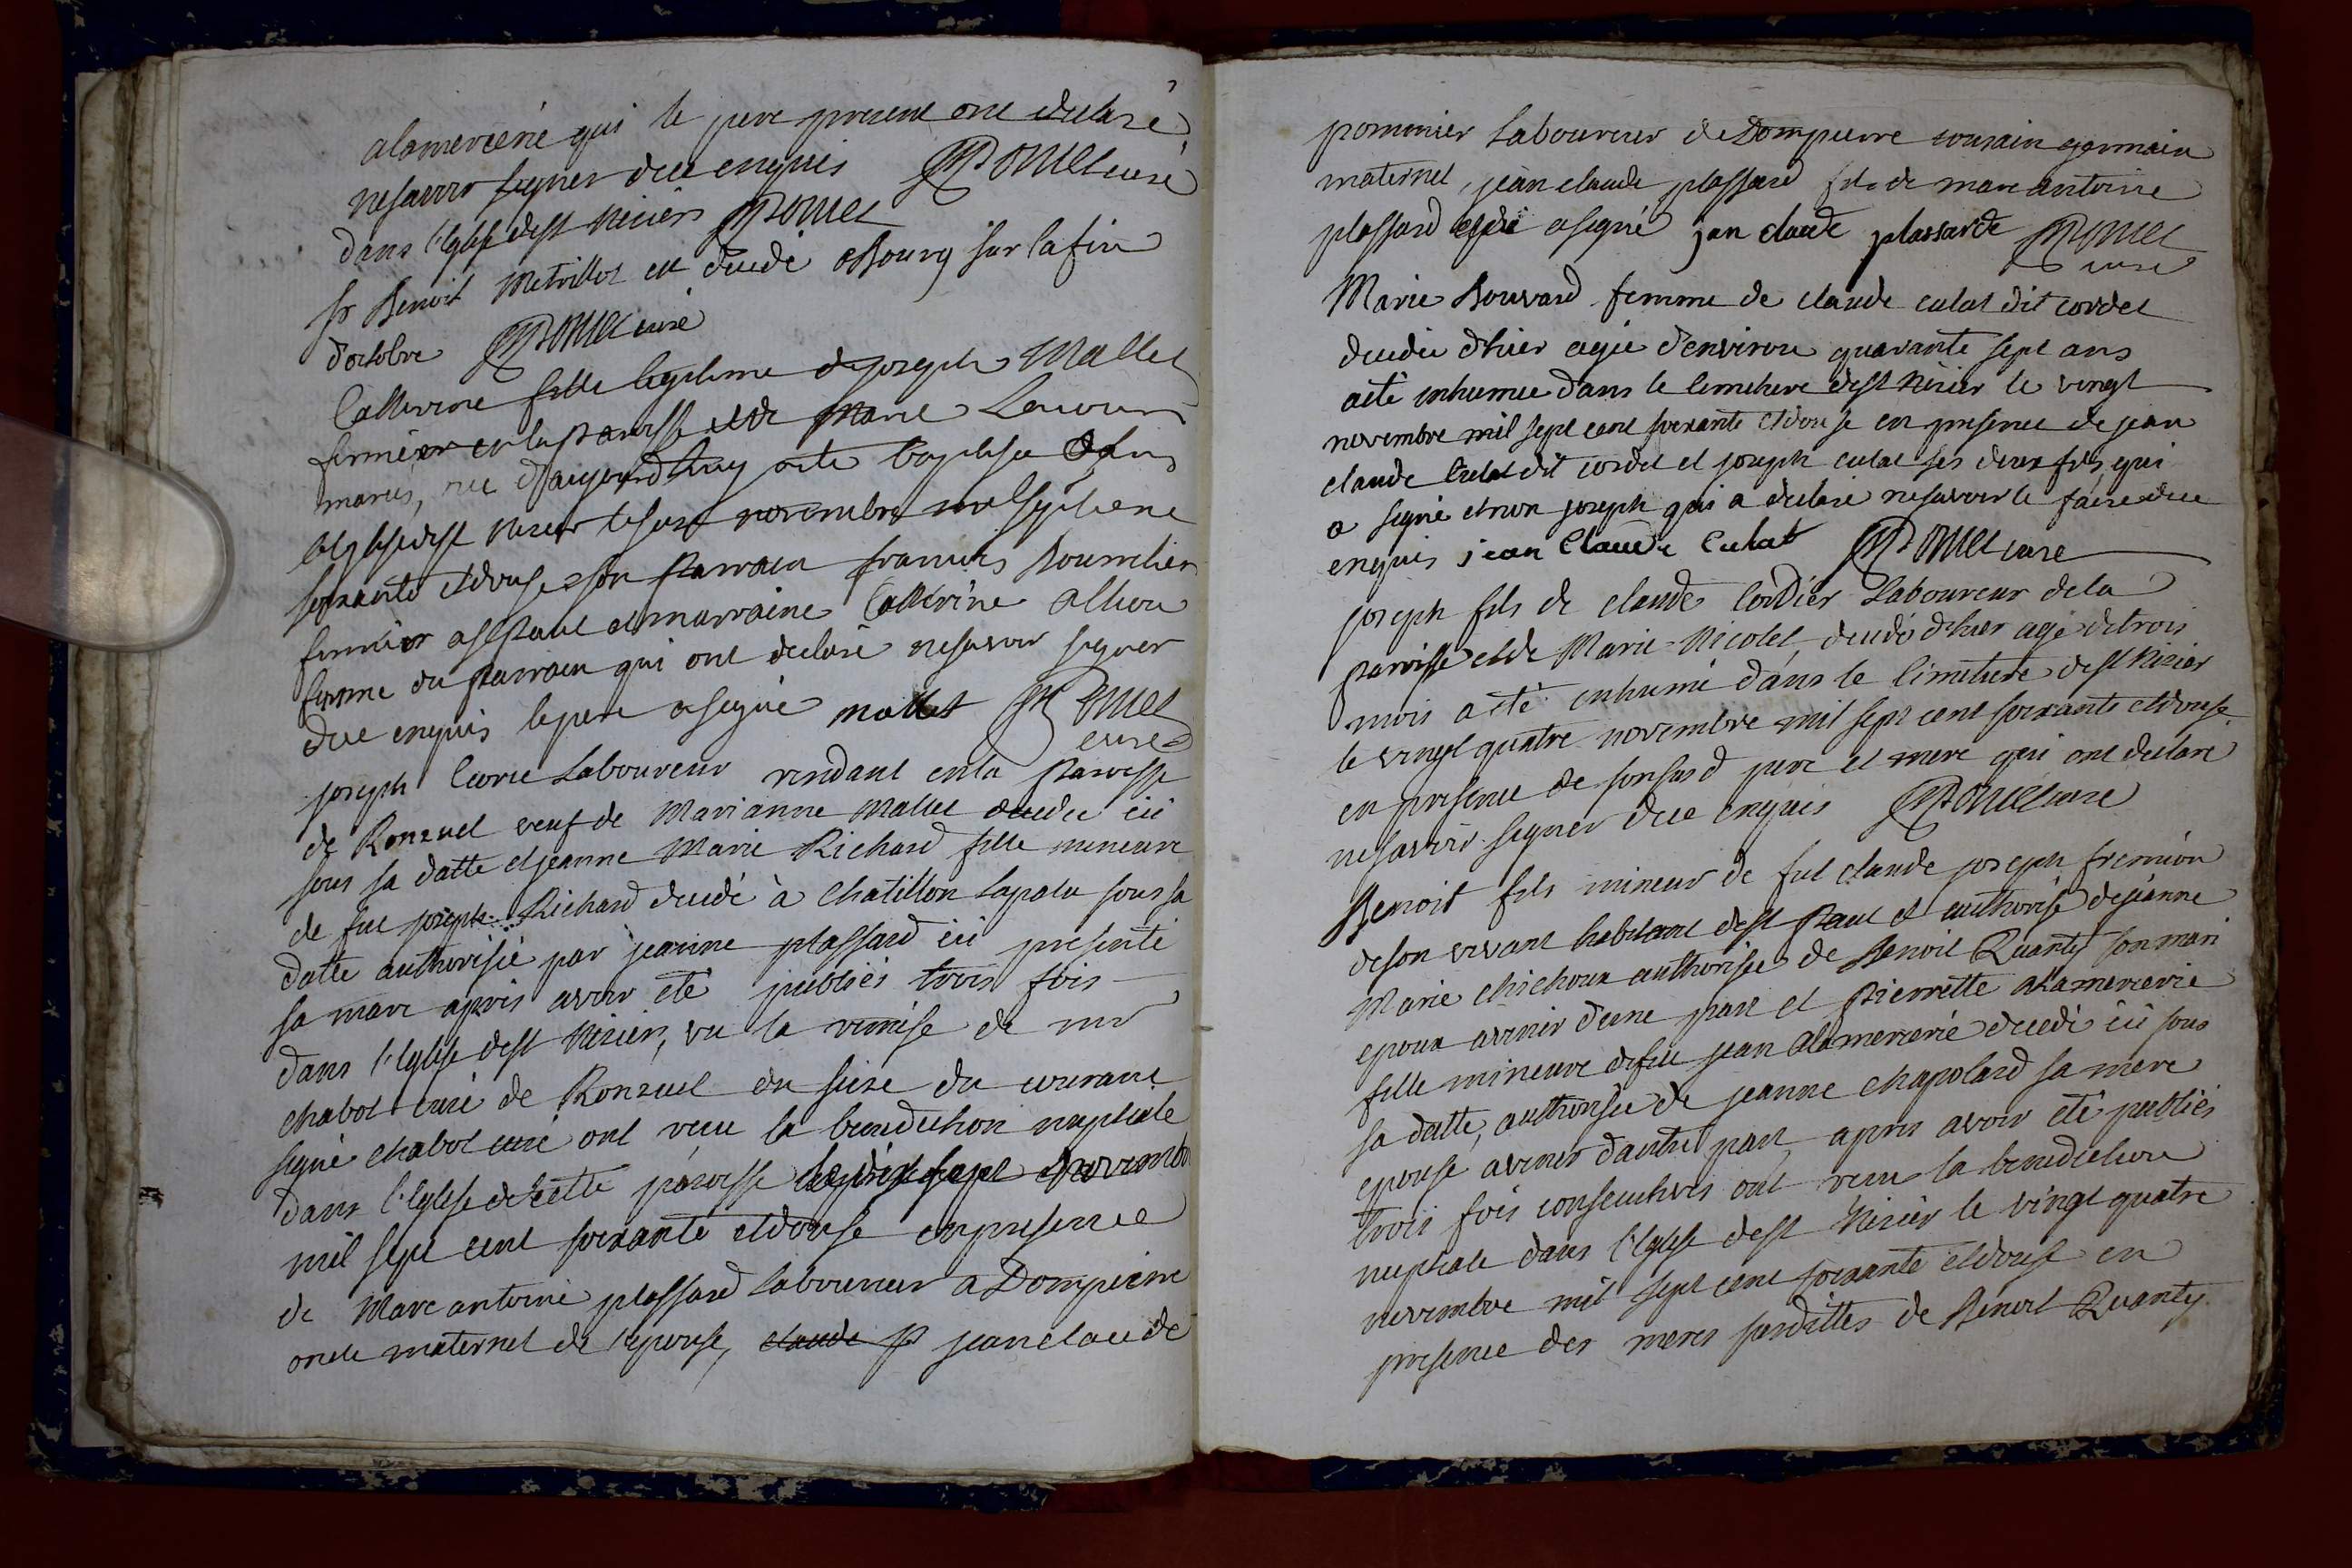 alamercerie qui le pere present ont declaré
nesavoir signer duement enquis Ponnet curé
dans l'eglise de st nisier Ponnet
sr Benoit Metrillot est decedé a Bourg sur la fin
d'octobre Ponnet curé
Catherine fille legitime de joseph Mallet
fermier en la paroisse et de Marie
maries, née d'aujourd'huy a eté baptisée dans
l'eglise de st nisier le seise novembre mil sept cent
soixante et douse son parrain francois Dournelier
fermier a st paul et marraine Catherine
femme du parrain qui ont declaré nesavoir signer
due enquis le pere a signé mallet Ponnet
curé
joseph laboureur residant en la paroisse
de Ronzuel veuf de Marianne Mallet decedee ici
sous sa datte et jeanne Marie Richard fille mineure
de feu joseph Richard decedé à Chatillon lapalu sous sa
datte authorisée par jeanne plassard ici presente
sa mere apres avoir eté publiés trois fois
dans l'eglise de st Nisier, vu la remise de mr
chabot curé de Ronzuel du seise du courant
signé chabot curé ont recu la benediction nuptiale
dans l'eglise de cette paroisse le dix sept novembre
mil sept cent soixante et douse en presence
de Marc antoine plassard laboureur a Dompierre
oncle maternel de l'epouse, claude p jean claude
pommier laboureur de Dompierre cousain germain
maternel, jean claude plassard fils de marc antoine
plassard qui a signé jan claude plassarde Ponnet
curé
Marie Bouvard femme de claude culat dit cordet
decedée d'hier agée d'environ quarante sept ans
a eté inhumee dans le cimetiere de st Nisier le vingt
novembre mil sept cent soixante et douse en presence de jean
claude Culat dit cordet et joseph culat ses deux fils qui
a signé et non joseph qui a declaré nesavoir le faire due
enquis jean Claude Culat Ponnet curé
joseph fils de claude Cordier laboureur de la
paroisse et de Marie Nicolet, decedé d'hier agé de trois
mois a eté inhumé dans le cimetiere de st Nisier
le vingt quatre novembre mil sept cent soixante et douse
en presence de son susd pere et mere qui ont declaré
nesavoir signer due enquis Ponnet curé
Benoit fils mineur de feu claude joseph fremion
de son vivant habitant de st Paul et authorisé de jeanne
Marie chichoux authorisée de Benoit Quanty son mari
epoux avenir d'une part et Pierrette alamercerie
fille mineure de feu jean alamercerie decedé ici sous
sa datte, authorisée de jeanne chapolard sa mere
epouse avenir d'autre part, apres avoir eté publiés
trois fois consecutives ont recu la benediction
nuptiale dans l'eglise de st Nisier le vingt quatre
novembre mil sept cent soixante et douse en
presence des meres susdittes de Benoit Quanty